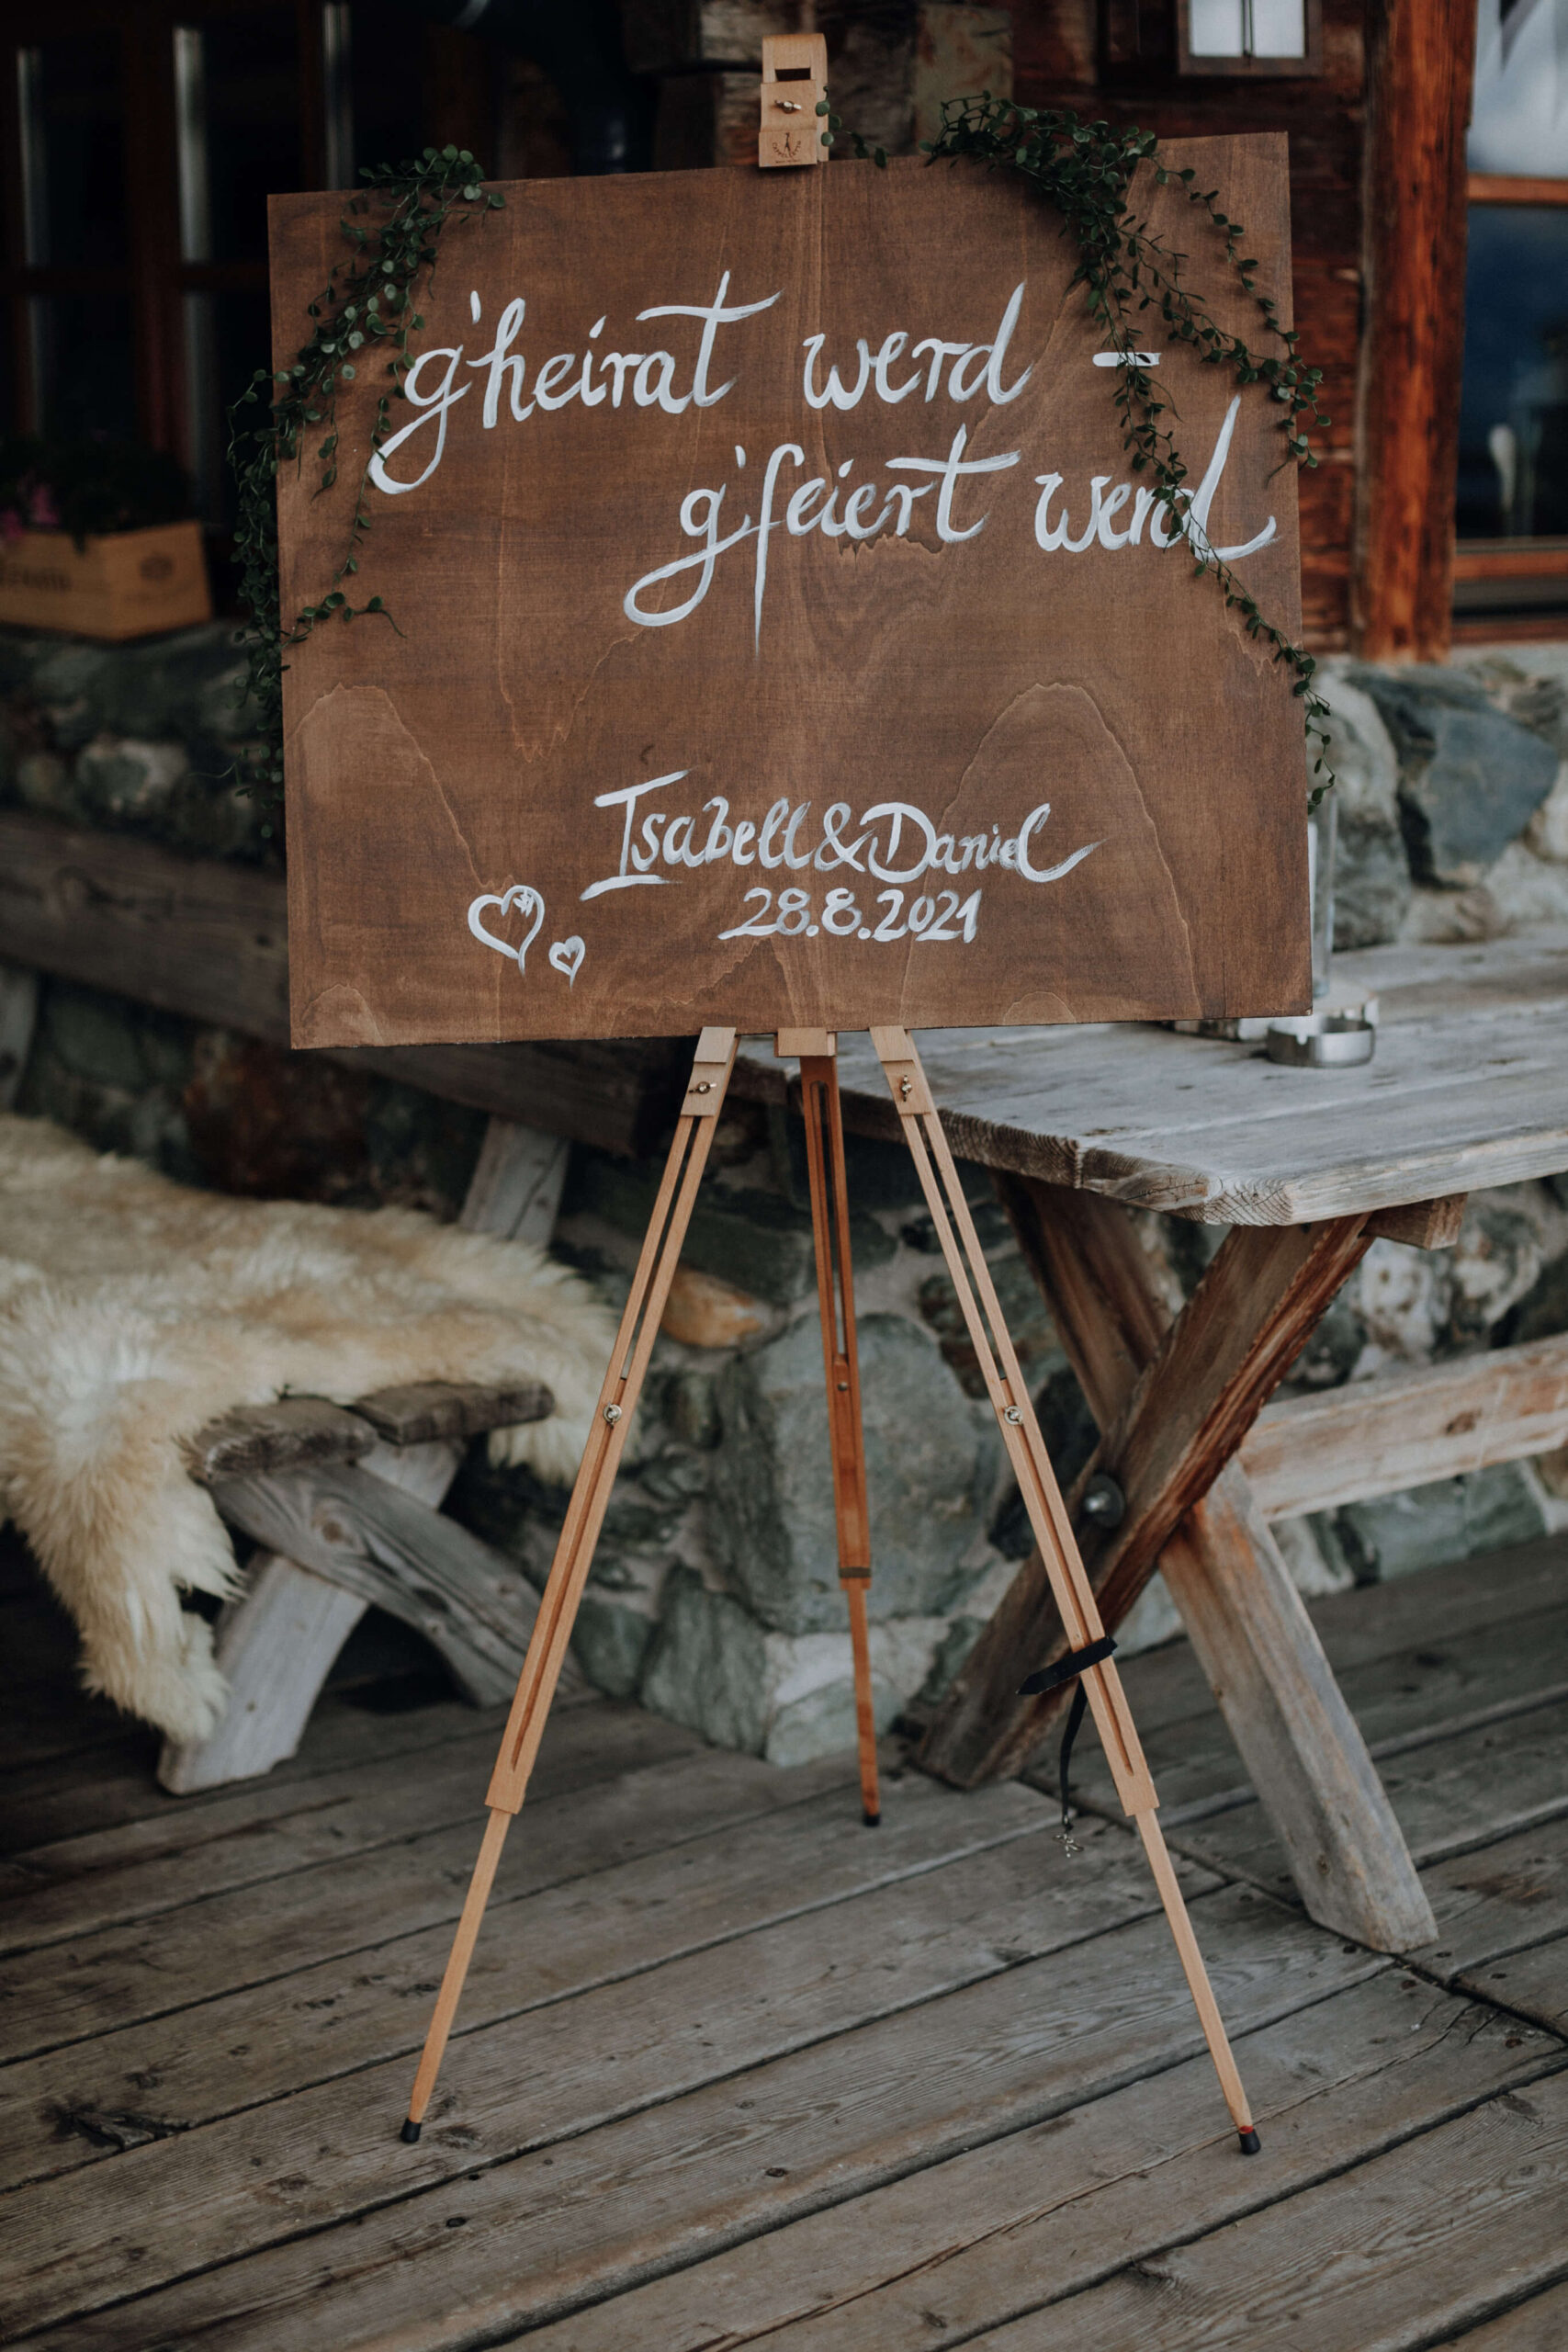 g'heirat werd –
g'feiert werd
Isabell & Daniel
28.8.2021